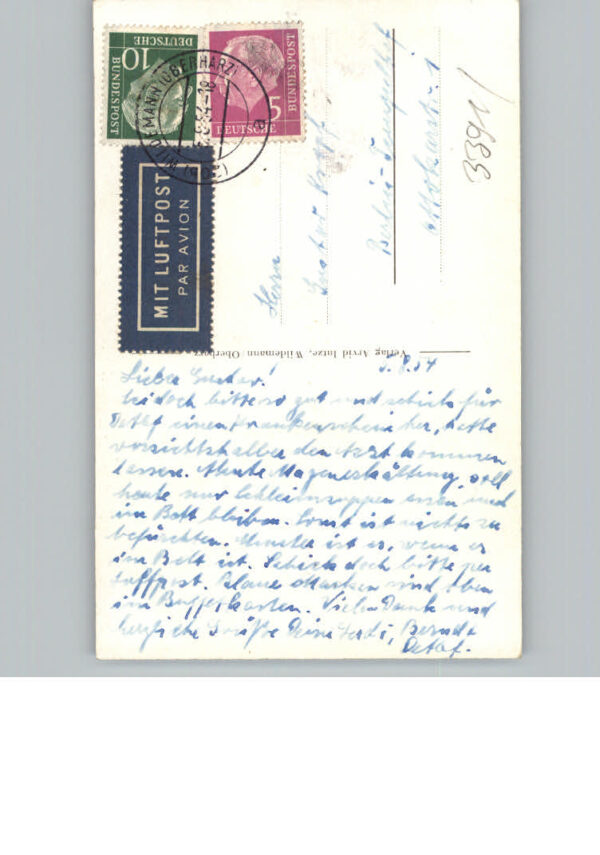 10
DEUTSCHE
BUNDESPOST
5
DEUTSCHE
BUNDESPOST
WILDEMANN (OBERHARZ)
a
MIT LUFTPOST
PAR AVION
3391/
Herrn
Gustav
Berlin-Tempelhof
Verlag Arvid Intze, Wildemann, Oberharz
5.8.54
Lieber Gustav!
Sei doch bitte so gut und schick für
Detlef einen Krankenschein her, hatte
vorsichtshalber den Arzt kommen
lassen. Akute Magenerkältung, soll
heute nur Schleimsuppen essen und
im Bett bleiben. Sonst ist nichts zu
befürchten. Munter ist er, wenn er
im Bett ist. Schick doch bitte per
Luftpost. Blaue Marken sind oben
im Buffetkasten. Vielen Dank und
herzliche Grüße Deine Gerdi, Bernd+
Detlef.